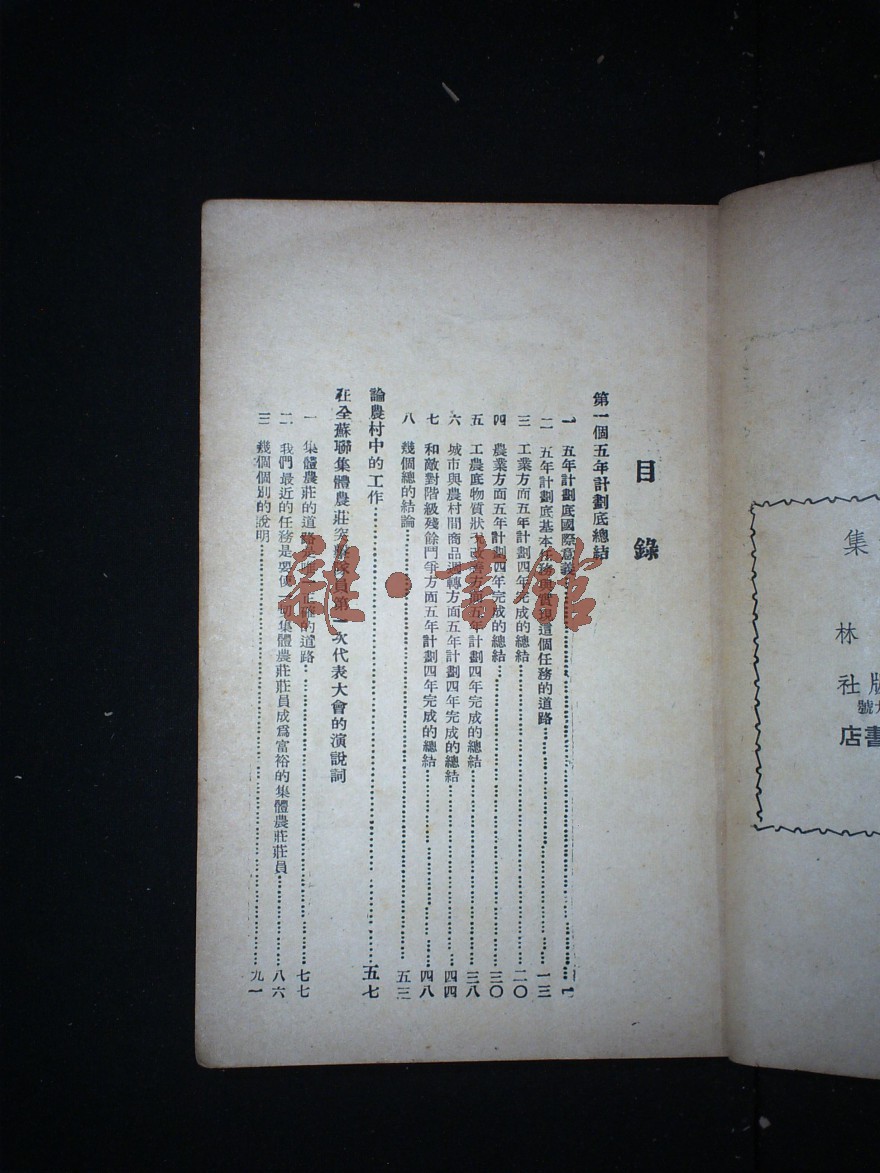 目錄
第一個五年計劃底總結
一 五年計劃底國際意義……一
二 五年計劃底基本任務與實現這個任務的道路……一三
三 工業方面五年計劃四年完成的總結……二〇
四 農業方面五年計劃四年完成的總結……三〇
五 工農底物質狀況改善方面五年計劃四年完成的總結……三八
六 城市與農村間商品週轉方面五年計劃四年完成的總結……四四
七 和敵對階級殘餘鬥爭方面五年計劃四年完成的總結……四八
八 幾個總的結論……五三
論農村中的工作……五七
在全蘇聯集體農莊突擊隊員第一次代表大會的演說詞
一 集體農莊的道路是唯一正確的道路……七七
二 我們最近的任務是要使一切集體農莊莊員成爲富裕的集體農莊莊員……八六
三 幾個個別的說明……九一
集
林
版社
號
書店
雜·書館